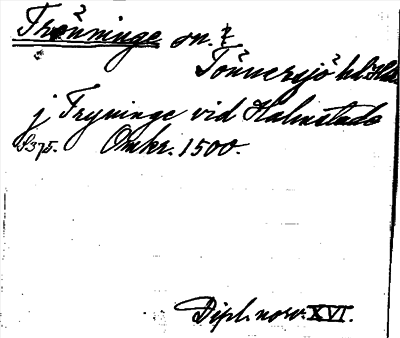 Trönninge sn. ?
Tönnersjö hd. Hall.
j Tryninge vid Halmstade
S 375. Omkr. 1500.
Dipl. norv. XVI.